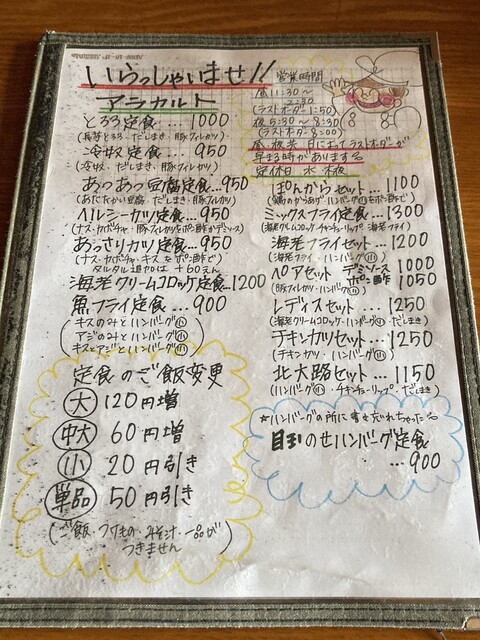 いらっしゃいませ!!
アラカルト
とろろ定食… 1000
(長芋とろろ・だしまき・豚フィレカツ)
冷奴定食… 950
(冷奴・だしまき・豚フィレカツ)
あつあつ豆腐定食…950
(あたたかい豆腐・だしまき・豚フィレカツ)
ヘルシーカツ定食…950
(ナス・カボチャ・豚フィレカツをポン酢かデミソース)
あっさりカツ定食…950
(ナス・カボチャ・キスをポン酢で)
タルタル追加は +60えん
海老クリームコロッケ定食…1200
魚フライ定食…900
(キスのみとハンバーグ小
アジのみとハンバーグ小
キスとアジとハンバーグ小)
定食のご飯変更
大 120円増
中大 60円増
小 20円引き
単品 50円引き
(ご飯・つけもの・みそ汁・一品が
つきません)
営業時間
昼11:30~
2:30
(ラストオーダー1:50)
夜5:30~8:30
(ラストオーダー8:00)
昼、夜共 日によってラストオーダーが
早まる時があります
定休日 水 木夜
ぽんからセット…1100
ミックスフライ定食…1300
(海老クリームコロッケ・チキンチューリップ・海老フライ)
海老フライセット…1200
(海老フライ・ハンバーグ小)
ペアセット デミソース 1000
ポン酢 1050
(豚フィレカツ・ハンバーグ小)
レディスセット…1250
(海老クリームコロッケ・ハンバーグ小・だしまき)
チキンカツセット…1250
(チキンカツ・ハンバーグ小)
北大路セット…1150
(ハンバーグ小・チキンチューリップ・だしまき)
☆ハンバーグの所に書き忘れちゃった
目玉のせハンバーグ定食
…900